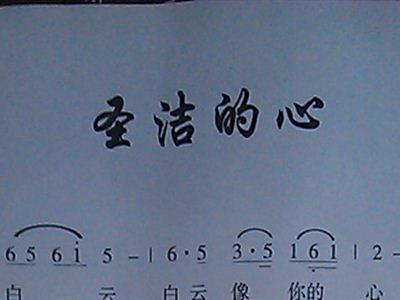 圣洁的心
6 5 6 i 5 – | 6 · 5 3 · 5 1 6 1 | 2 –
白 云 白云 像 你的 心